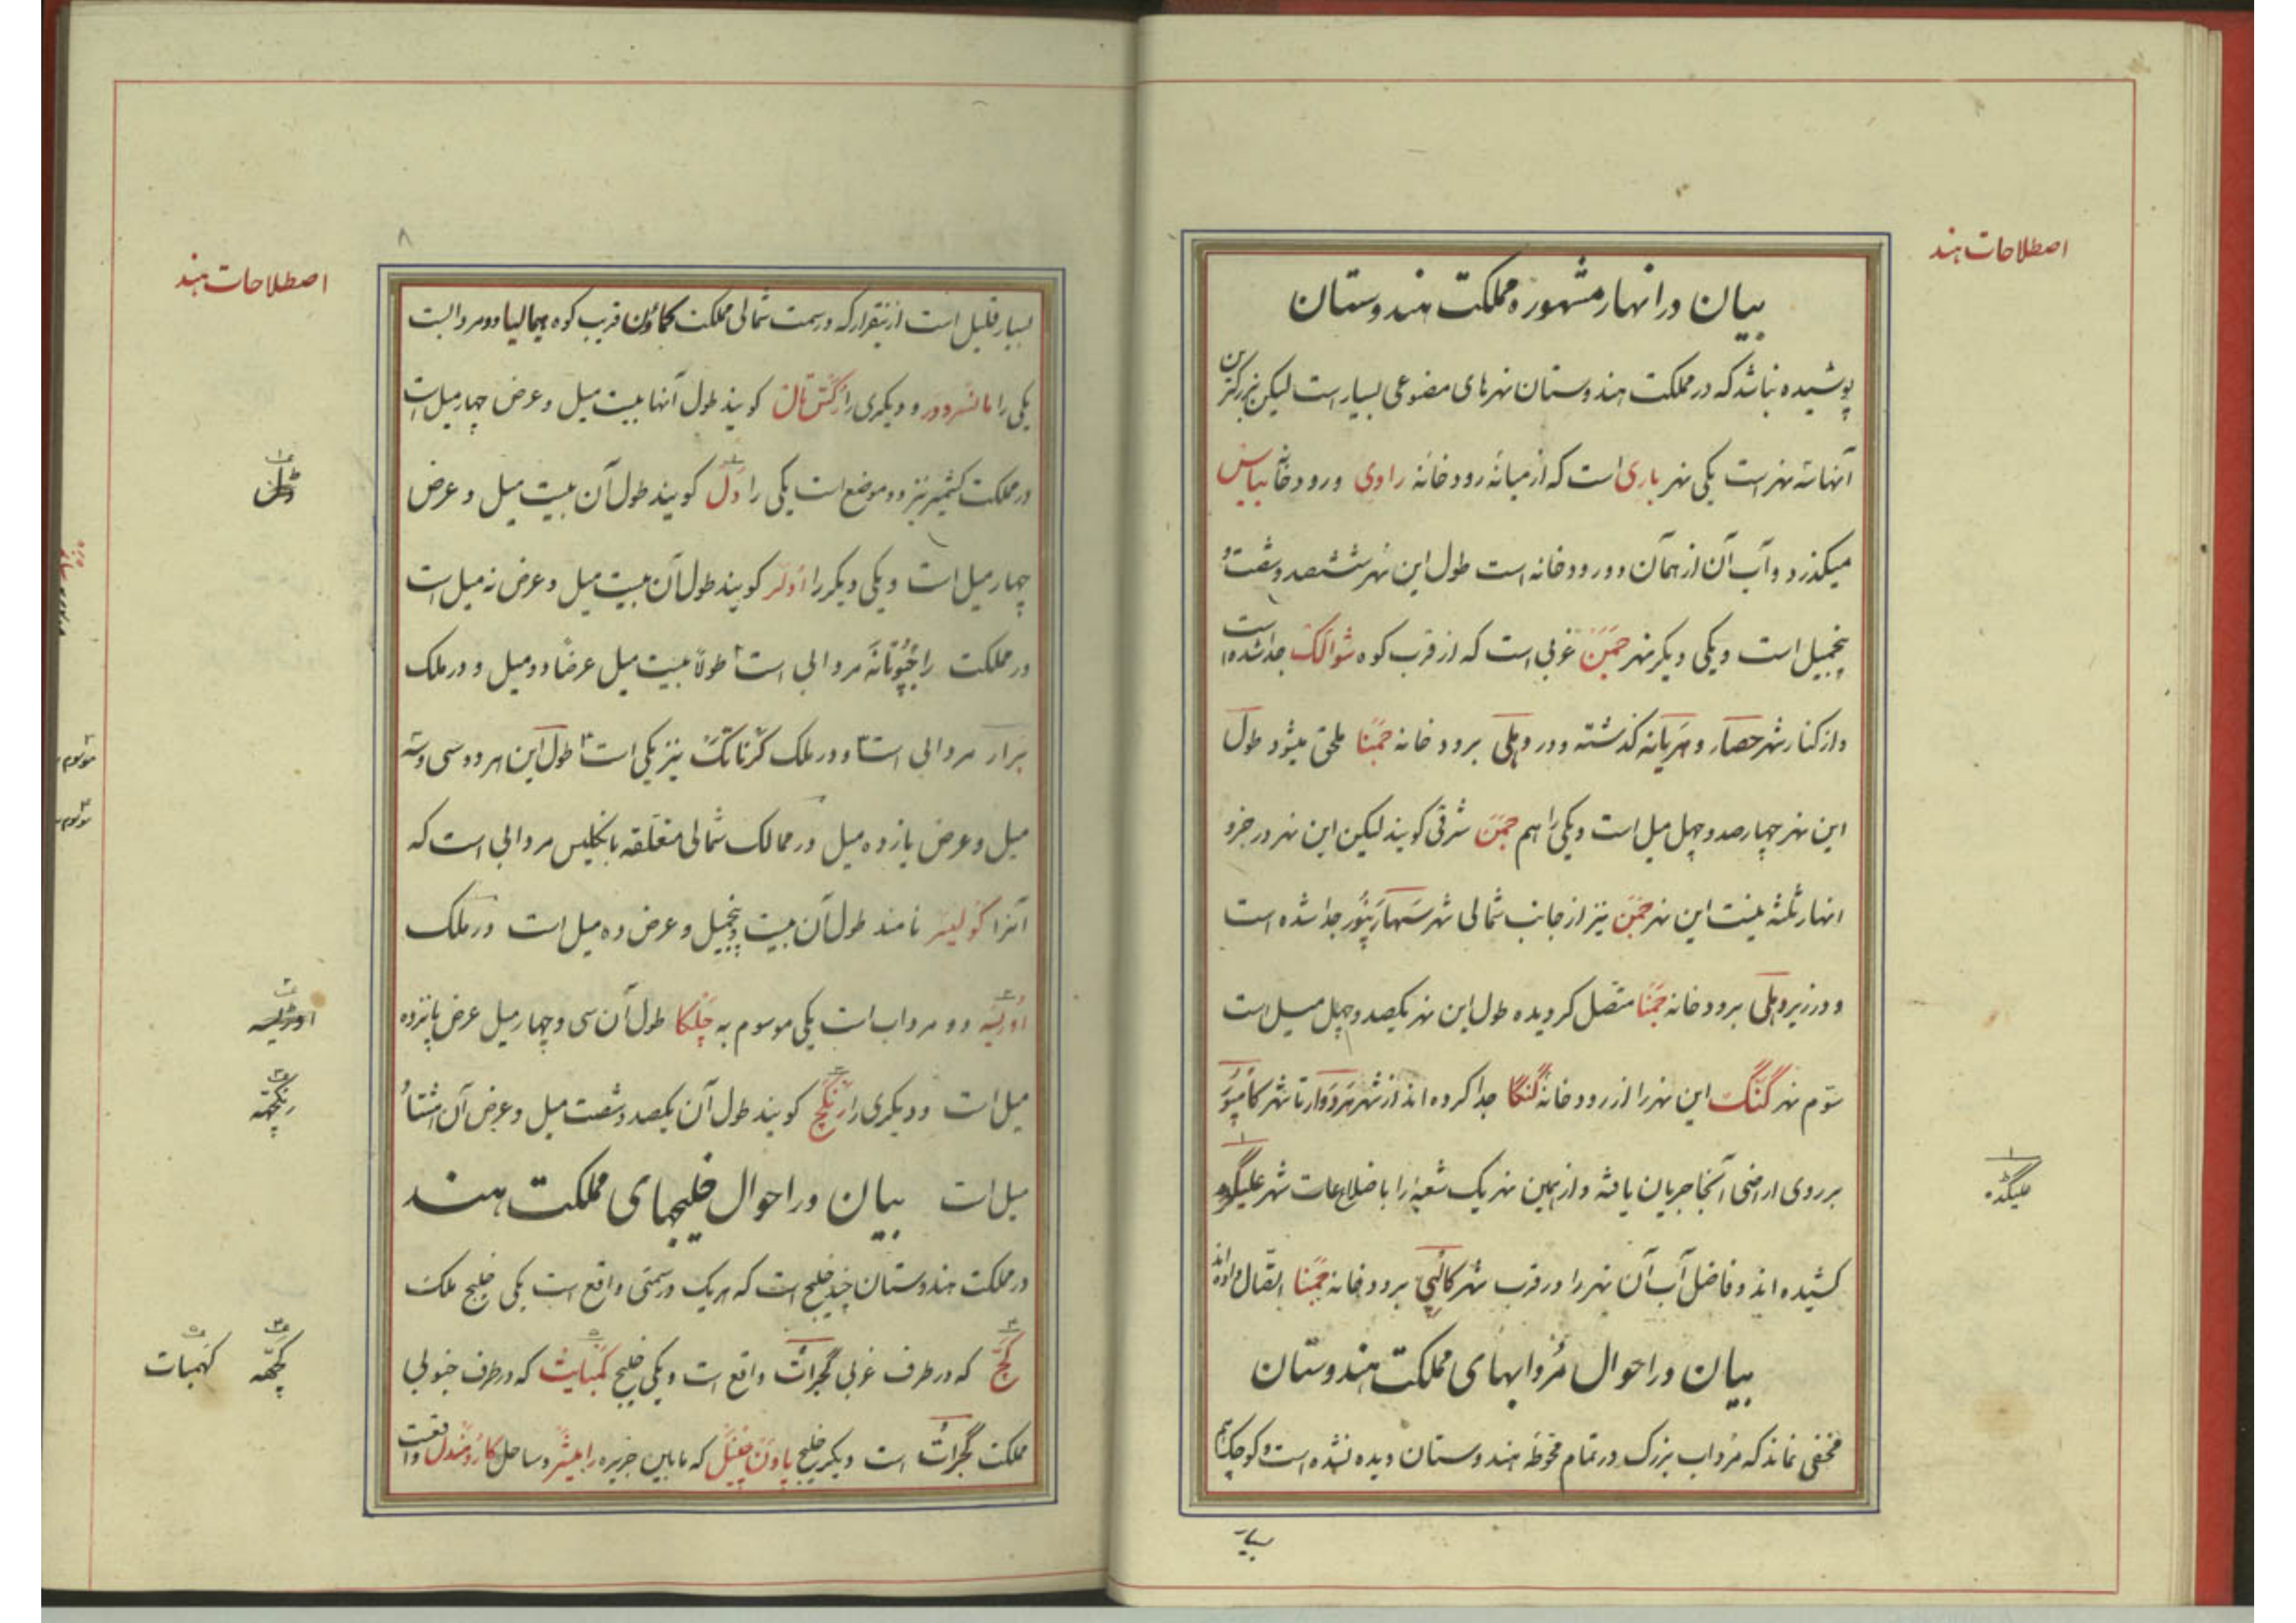 اصطلاحات هند
بیان در انهار مشهوره مملکت هندوستان
پوشیده نباشد که در مملکت هندوستان نهرهای مصنوعی بسیار است لیکن بزرکترین
آنها سه نهر است یکی نهر باری است که از میانه رودخانه راوی و رودخانه بیاس
میکذرد و آب آن از همان دو رودخانه است طول این نهر ششصد و شصت و
پنجمیل است و یکی دیکر نهر جمن غربی است که از قرب کوه شوالک جدا شده است
و از کنار شهر حصار و هریانه کذشته و در دهلی برودخانه جمنا ملحق میشود طول
این نهر چهارصد و چهل میل است و یکی را هم جمن شرقی کویند لیکن این نهر در جزو
انهار ثلثه نیست این نهر جمن نیز از جانب شمالی شهر سهارنپور جدا شده است
و در زیر دهلی برودخانه جمنا متصل کردیده طول این نهر یکصد و چهل میل است
سوم نهر گنگ این نهر را از رودخانه گنگا جدا کرده اند از شهر هردوار تا شهر کانپور
بر روی اراضی آنجا جریان یافته و از همین نهر یک شعبه را باضلاعات شهر علیگده
علیگڈه
کشیده اند و فاضل آب آن نهر را در قرب شهر کالپی برودخانه جمنا اتصال داده اند
بیان در احوال مردابهای مملکت هندوستان
مخفی نماند که مرداب بزرک در تمام محوطه هندوستان دیده نشده است و کوچک هم
بسیار
اصطلاحات هند
۸
بسیار قلیل است از ینقرار که در سمت شمالی مملکت کماون قریب کوه همالیا دو مرداب است
یکی را مانسرودر و دیکری را رکش تال کویند طول آنها بیست میل و عرض چهار میل است
در مملکت کشمیر نیز دو موضع است یکی را دل کویند طول آن بیست میل و عرض
ڈل
چهار میل است و یکی دیکر را اولر کویند طول آن بیست میل و عرض نه میل است
در مملکت راجپوتانه مردابی است طولا بیست میل عرضا دو میل و در ملک
برار مردابی است و در ملک کرناتک نیز یکی است طول این هر دو سی و سه
میل و عرض یازده میل در ممالک شمالی متعلقه بانکلیس مردابی است که
آنرا کولیر نامند طول آن بیست و پنجمیل و عرض ده میل است در ملک
اوریسه دو مرداب است یکی موسوم به چلکا طول آن سی و چهار میل عرض پانزده
اوڑیسه
میل است و دیکری را رنکچ کویند طول آن یکصد و شصت میل و عرض آن هشتاد
رنکچهه
میل است بیان در احوال خلیجهای مملکت هند
در مملکت هندوستان چند خلیج است که هریک در سمتی واقع است یکی خلیج ملک
کچ که در طرف غربی گجرات واقع است و یکی خلیج کمبایت که در طرف جنوبی
کچهه کهمبات
مملکت گجرات است دیکر خلیج که مابین جزیره و ساحل کارومندل واقعست